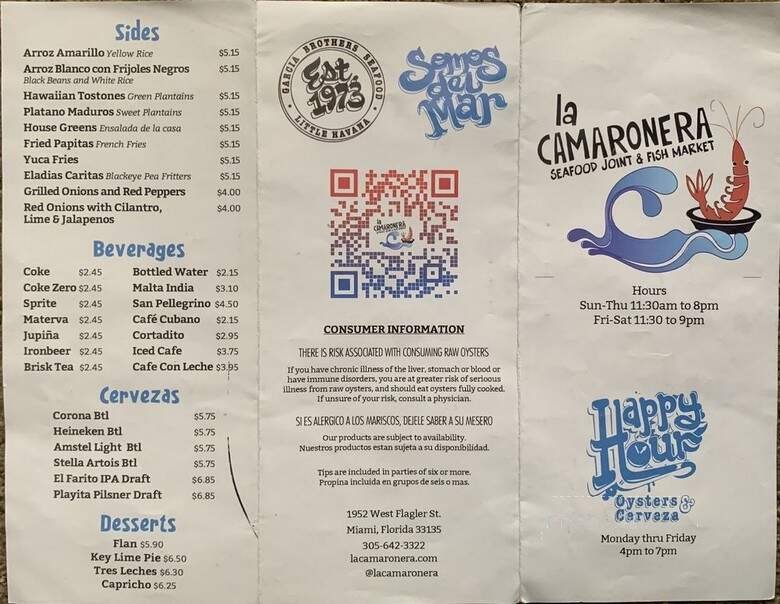 Sides
Arroz Amarillo Yellow Rice $5.15
Arroz Blanco con Frijoles Negros $5.15
Black Beans and White Rice
Hawaiian Tostones Green Plantains $5.15
Platano Maduros Sweet Plantains $5.15
House Greens Ensalada de la casa $5.15
Fried Papitas French Fries $5.15
Yuca Fries $5.15
Eladias Caritas Blackeye Pea Fritters $5.15
Grilled Onions and Red Peppers $4.00
Red Onions with Cilantro, $4.00
Lime & Jalapenos
Beverages
Coke $2.45 Bottled Water $2.15
Coke Zero $2.45 Malta India $3.10
Sprite $2.45 San Pellegrino $4.50
Materva $2.45 Café Cubano $2.15
Jupiña $2.45 Cortadito $2.95
Ironbeer $2.45 Iced Cafe $3.75
Brisk Tea $2.45 Cafe Con Leche $3.95
Cervezas
Corona Btl $5.75
Heineken Btl $5.75
Amstel Light Btl $5.75
Stella Artois Btl $5.75
El Farito IPA Draft $6.85
Playita Pilsner Draft $6.85
Desserts
Flan $5.90
Key Lime Pie $6.50
Tres Leches $6.30
Capricho $6.25
GARCIA BROTHERS SEAFOOD
Est.
1973
LITTLE HAVANA
Somos
del
Mar
la
CAMARONERA
CONSUMER INFORMATION
THERE IS RISK ASSOCIATED WITH CONSUMING RAW OYSTERS
If you have chronic illness of the liver, stomach or blood or
have immune disorders, you are at greater risk of serioous
illness from raw oysters, and should eat oysters fully cooked.
If unsure of your risk, consult a physician.
SI ES ALERGICO A LOS MARISCOS, DEJELE SABER A SU MESERO
Our products are subject to availability.
Nuestros productos estan sujeta a su disponibilidad.
Tips are included in parties of six or more.
Propina incluida en grupos de seis o mas.
1952 West Flagler St.
Miami, Florida 33135
305-642-3322
lacamaronera.com
@lacamaronera
la
CAMARONERA
SEAFOOD JOINT & FISH MARKET
Hours
Sun-Thu 11:30am to 8pm
Fri-Sat 11:30 to 9pm
Happy
Hour
Oysters &
Cerveza
Monday thru Friday
4pm to 7pm